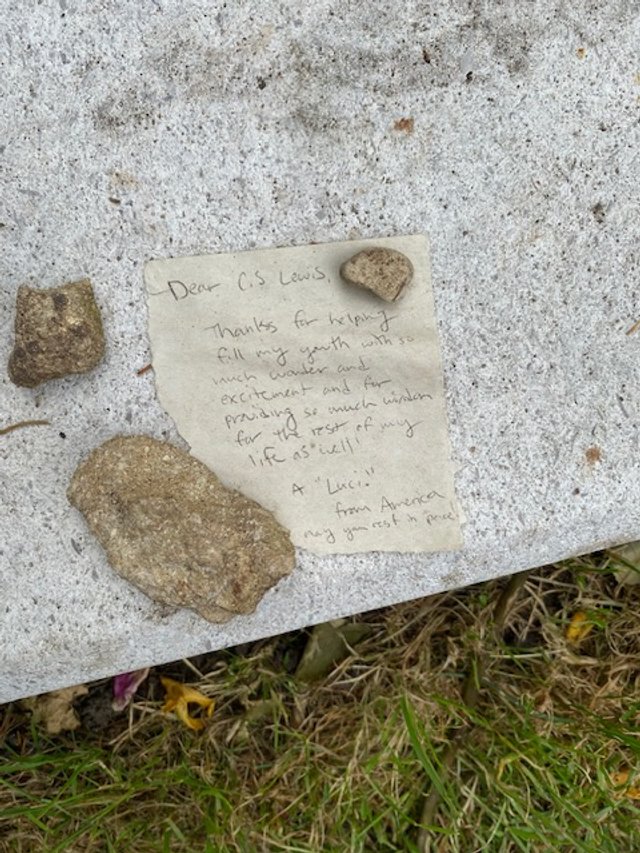 Dear C.S Lewis,
Thanks for helping
fill my youth with so
much wonder and
excitement and for
providing so much wisdom
for the rest of my
life as well!
A "Luci"
from America
may you rest in peace